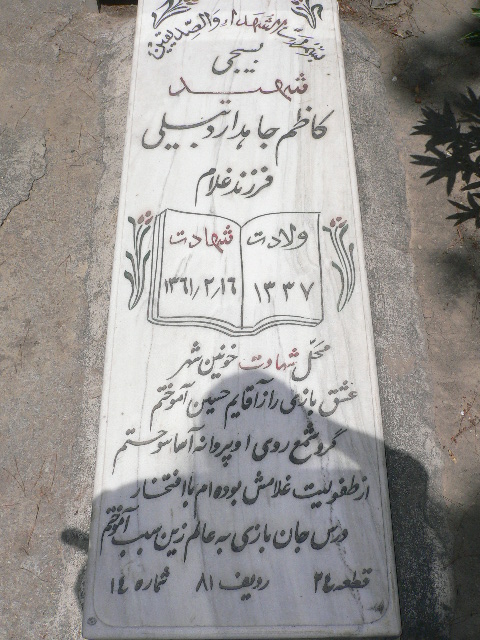 بنام رب الشهداء والصدیقین
بسیجی
شهید
کاظم جاهد اردبیلی
فرزند غلام
ولادت
۱۳۳۷
شهادت
۱۳۶۱/۲/۱۶
محل شهادت خونین شهر
عشق بازی را ز آقایم حسین آموختم
گرد شمع روی او پروانه آسا سوختم
از طفولیت غلامش بوده ام با افتخار
درس جان بازی به عالم زین سبب آموختم
قطعه ۲۴ ردیف ۸۱ شماره ۱۴